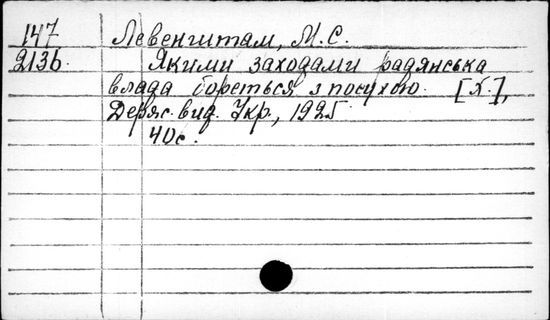 147 Левенгштам, М.С.
2136. Якими заходами радянська
влада бореться з посухою. [Х.],
Держ. вид. Укр., 1925
40с.